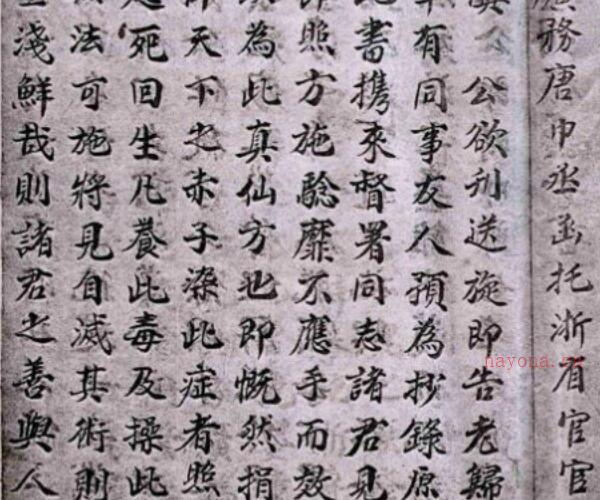 務唐中丞函托浙省官官
公欲刋送旋即告老歸
有同事友人預為抄錄原
書携來督署同志諸君見
照方施騐靡不應手而效
為此真仙方也即慨然捐
天下之赤子染此症者照
死回生凡養此毒及操此
法可施將見自滅其術則
淺鮮哉則諸君之善與人
nayona.